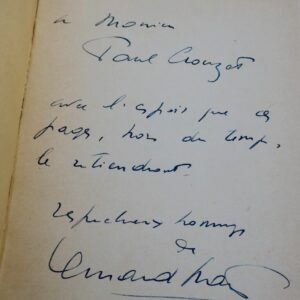 à Monsieur
Paul Crouzet
avec l'espoir que ces
pages, hors du temps,
le retiendront.
respectueux hommage
de